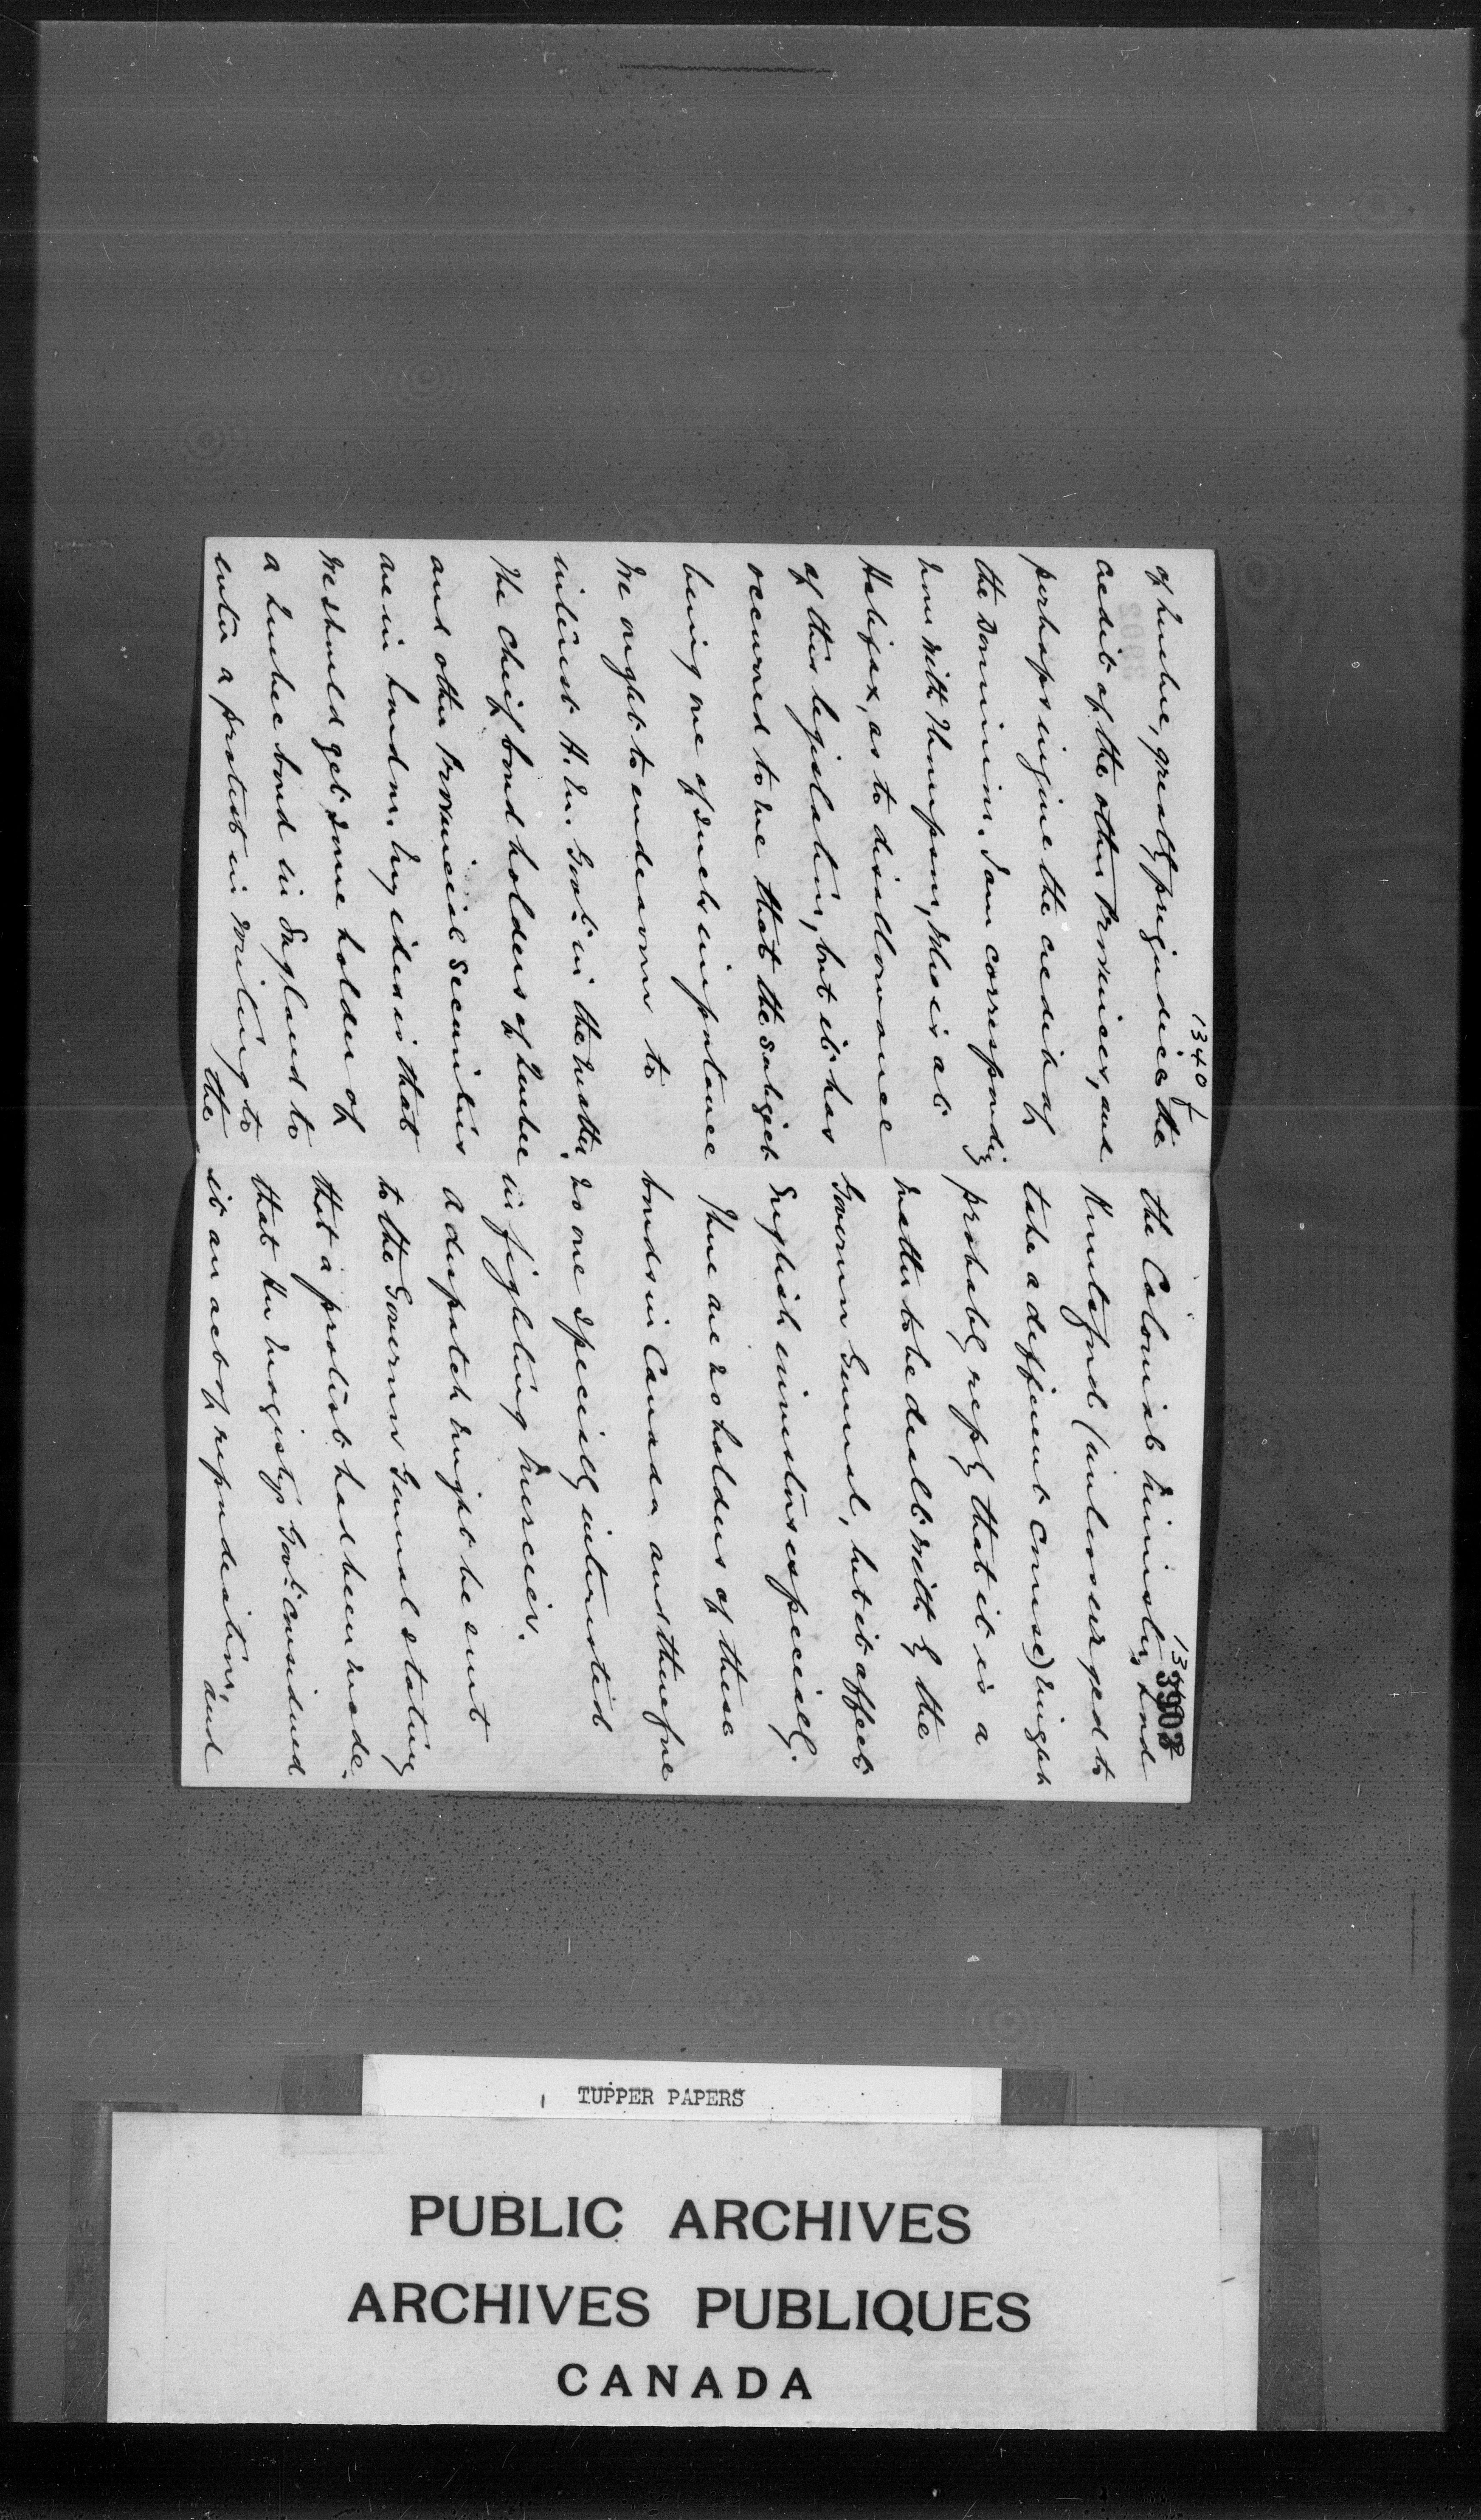 1340 1/2
of Quebec, greatly prejudice the
credit of the other Provinces, and
perhaps injure the credit of
the Dominion. I am corresponding
now with Thompson, who is at
Halifax, as to disallowance
of this legislation, but it has
occurred to me that the subject
being one of such importance
we ought to endeavour to
interest H. M. Govt. in the matter.
The cheif bond holders of Quebec
and other Provincial Securities
are in London. My idea is that
we should get some holder of
a Quebec bond in England to
enter a protest in writing to
the
3902
the Colonial Minister. Lord
Knutsford (unless urged to
take a different course) might
probably reply that it is a
matter to be dealt with by the
Governor General, but it affects
English investors especially.
There are no holders of these
bonds in Canada and therefore
no one specially interested
in fighting Mercier.
A despatch might be sent
to the Governor General stating
that a protest had been made.
that Her Majestys Govt. considered
it an act of repudiation,
and
TUPPER PAPERS
PUBLIC ARCHIVES
ARCHIVES PUBLIQUES
CANADA